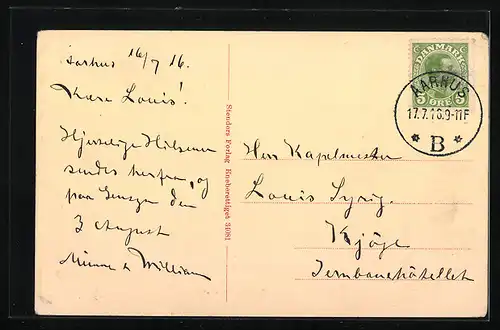 Aarhus 16/7 16.
Kære Louis!
Hjertelige Hilsener
sendes herfra, og
paa Gensyn den
3 August
Minna & William
Stenders Forlag Eneberettiget 34081
DANMARK
5 ØRE 5
AARHUS
17.7.16.9-11F
* B *
Herr Kapelmester
Louis
Kjöge
Jernbanehôtellet